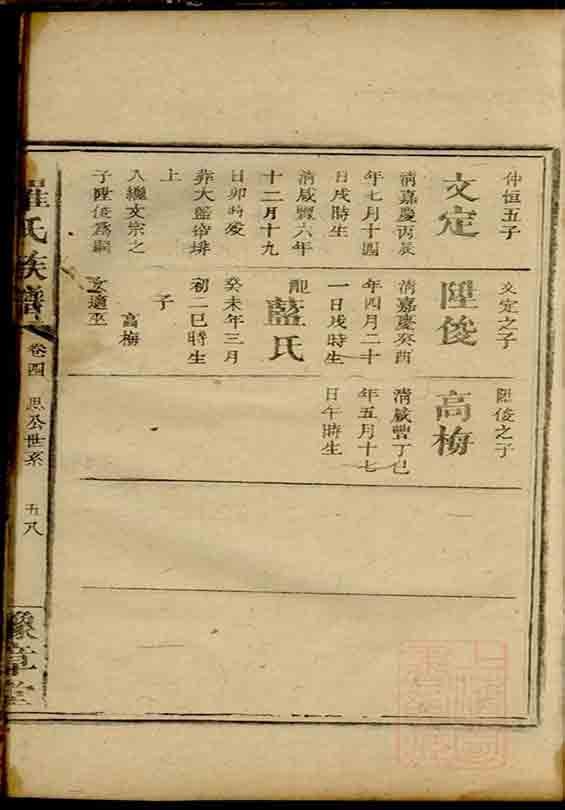 仲恒五子
文定
清嘉慶丙辰
年七月十四
日戌時生
清咸豐六年
十二月十九
日卯時歿
葬大藍彷排
上
入繼文宗之
子陞俊為嗣
文定之子
陞俊
清嘉慶癸酉
年四月二十
一日戌時生
配藍氏
癸未年三月
初二巳時生
子
高梅
女適巫
陞俊之子
高梅
清咸豐丁巳
年五月十七
日午時生
羅氏族譜
卷四
思公世系
五八
豫章堂